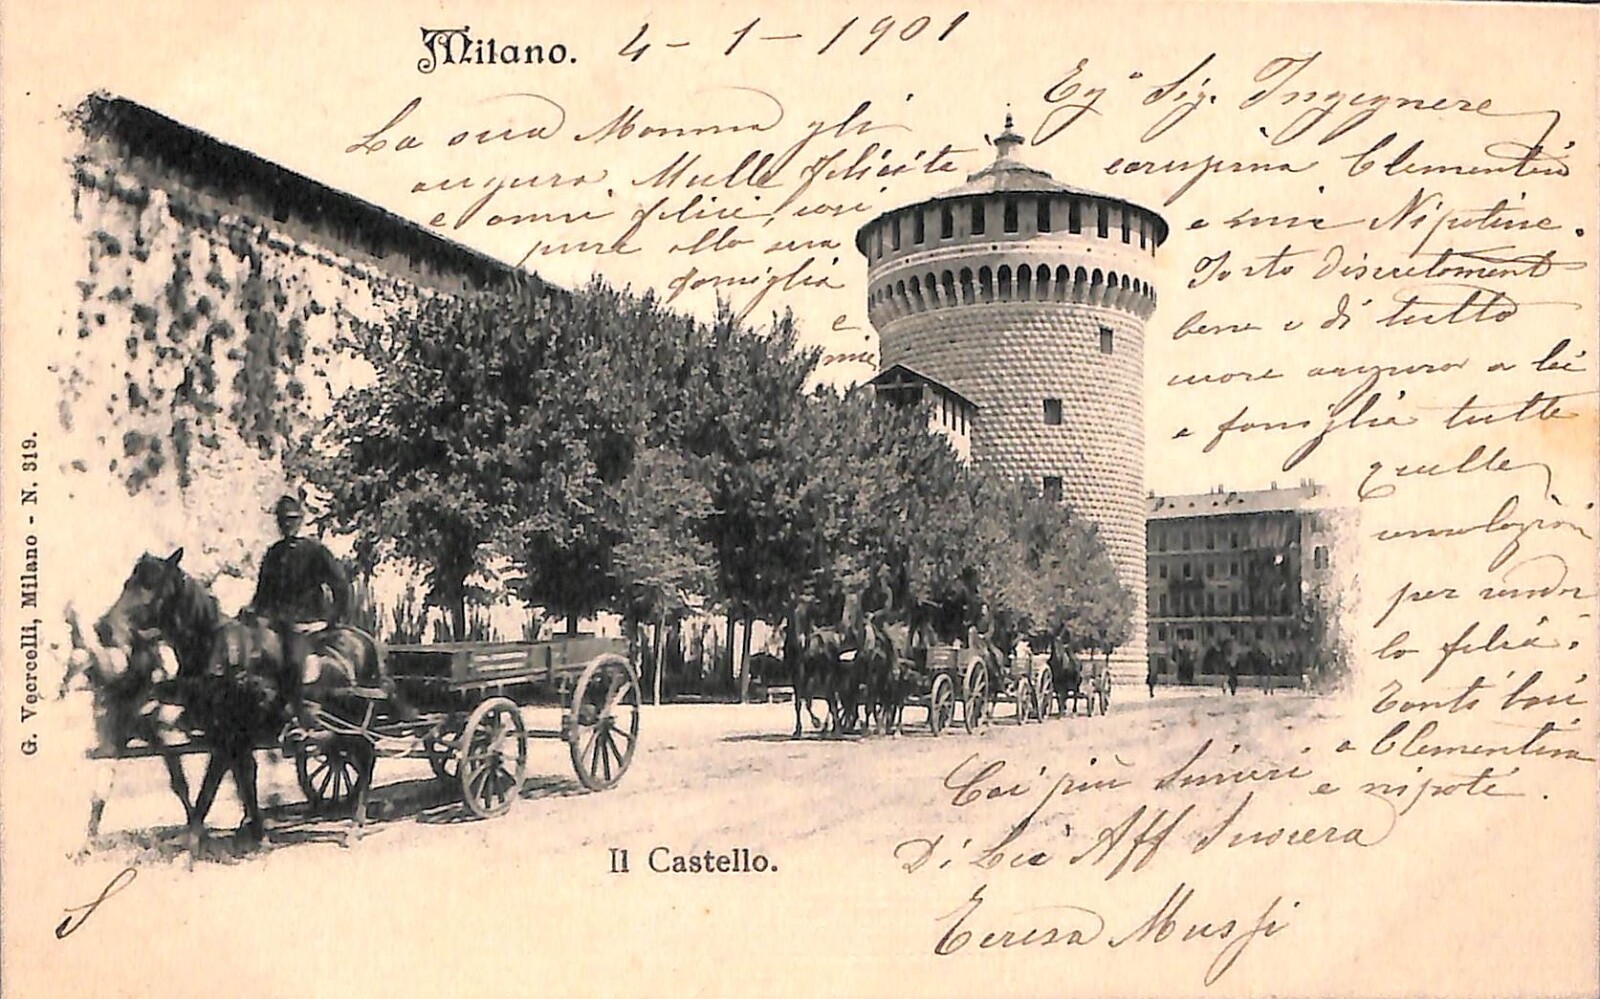 Milano. 4 - 1 - 1901
La sua Mamma gli
augura. Mille felicità
e anni felici, cosi
pure alla sua
famiglia
e
mie
Eg° Sig. Ingegnere
Clementina
e mie Nipotine.
discretament
bene e di tutto
cuore auguro a lei
e famiglia tutte
quelle
per render
la felici.
Tanti baci
a Clementina
e nipoti.
Coi più sinceri
Di Lei Aff Suocera
Teresa Mussi
Il Castello.
G. Vecrcelli, Milano - N. 319.
S